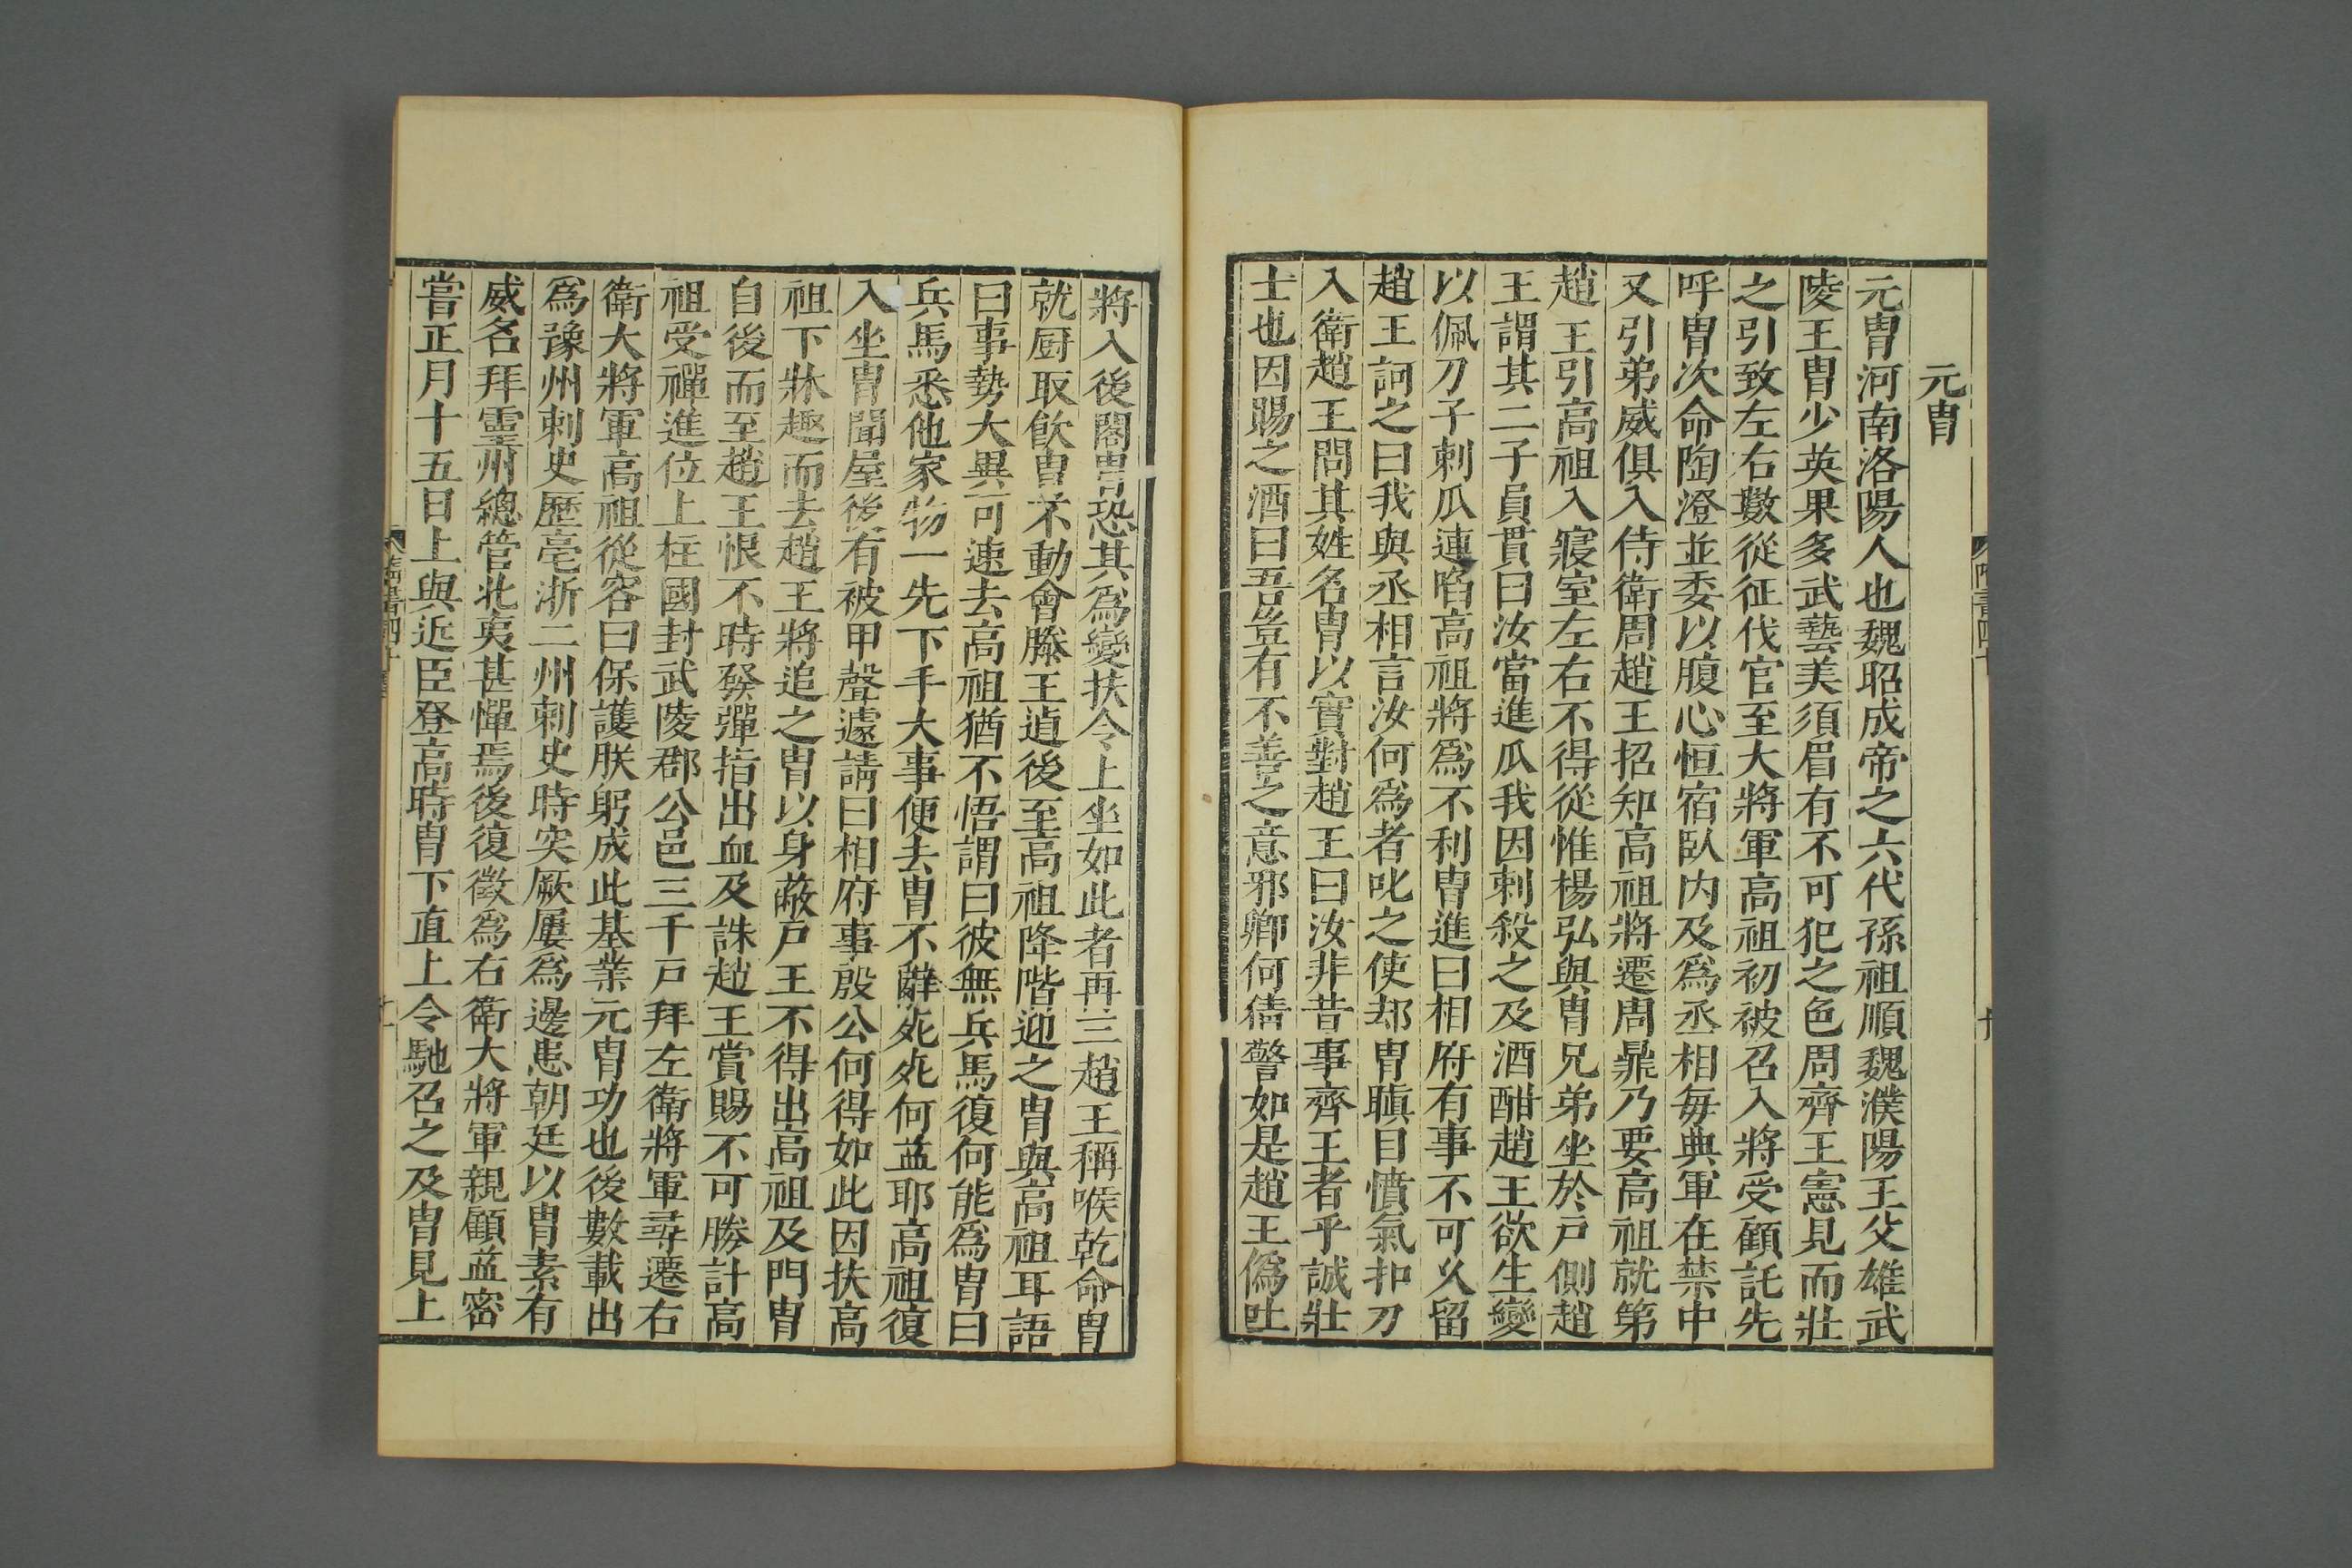 元胄
元胄河南洛陽人也魏昭成帝之六代孫祖順魏濮陽王父雄武
陵王胄少英果多武藝美須眉有不可犯之色周齊王憲見而壯
之引致左右數從征伐官至大將軍高祖初被召入將受顧託先
呼胄次命陶澄並委以腹心恒宿臥内及爲丞相每典軍在禁中
又引弟威俱入侍衛周趙王招知高祖將遷周鼎乃要高祖就第
趙王引高祖入寢室左右不得從惟楊弘與胄兄弟坐於戸側趙
王謂其二子員貫曰汝當進瓜我因刺殺之及酒酣趙王欲生變
以佩刀子刺瓜連啗高祖將爲不利胄進曰相府有事不可久留
趙王訶之曰我與丞相言汝何爲者叱之使却胄瞋目憤氣扣刀
入衛趙王問其姓名胄以實對趙王曰汝非昔事齊王者乎誠壯
士也因賜之酒曰吾豈有不善之意邪卿何猜警如是趙王僞吐
將入後閤胄恐其爲變扶令上坐如此者再三趙王稱喉乾命胄
就厨取飲胄不動會滕王逌後至高祖降階迎之胄與高祖耳語
曰事勢大異可速去高祖猶不悟謂曰彼無兵馬復何能爲胄曰
兵馬悉他家物一先下手大事便去胄不辭死死何益耶高祖復
入坐胄聞屋後有被甲聲遽請曰相府事殷公何得如此因扶高
祖下牀趣而去趙王將追之胄以身蔽戸王不得出高祖及門胄
自後而至趙王恨不時發彈指出血及誅趙王賞賜不可勝計高
祖受禪進位上柱國封武陵郡公邑三千戸拜左衛將軍尋遷右
衛大將軍高祖從容曰保護朕躬成此基業元胄功也後數載出
爲豫州刺史歷亳浙二州刺史時突厥屢爲邊患朝廷以胄素有
威名拜靈州總管北夷甚憚焉後復徵爲右衛大將軍親顧益密
嘗正月十五日上與近臣登高時胄下直上令馳召之及胄見上